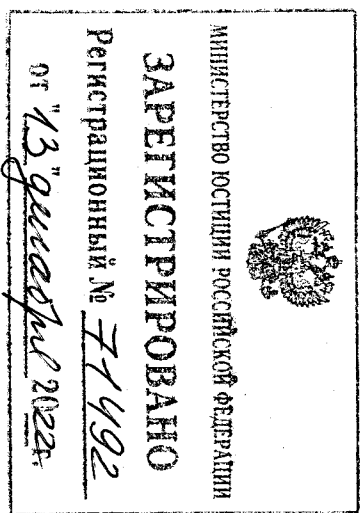 МИНИСТЕРСТВО ЮСТИЦИИ РОССИЙСКОЙ ФЕДЕРАЦИИ
ЗАРЕГИСТРИРОВАНО
Регистрационный № 71492
от "13" декабря 2022г.